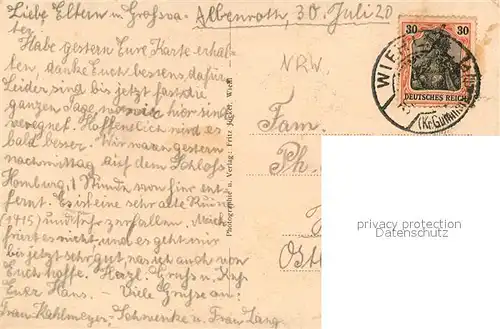 Liebe Eltern u. Großva-
ter,
Albenroth, 30. Juli 20
Habe gestern Eure Karte erhal-
ten, danke Euch bestens dafür.
Leider sind bis jetzt fast die
ganzen Tage wo wir hier sind
verregnet. Hoffenelich wird es
bald besser. Wir waren gestern
nachmittag auf dem Schloss
Homburg, 1 Stunde von hier ent-
fernt. Es ist eine sehr alte Ruine
(1415) und sehr zerfallen. Mich
friert es nicht, und es geht mir
bis jetzt sehr gut was ich auch von
Euch hoffe. Herzl. Gruss u. Kuss
Euer Hans. - Viele Grüsse an:
Frau Kahlmeyer, Schwenke u. Frau Lang
Photographie u. Verlag: Fritz Jäcker, Wiehl
NRW
Fam.
Ph.
Ost
30 30
DEUTSCHES REICH
WIEHL
(Kr. Gummersb
privacy protection
Datenschutz